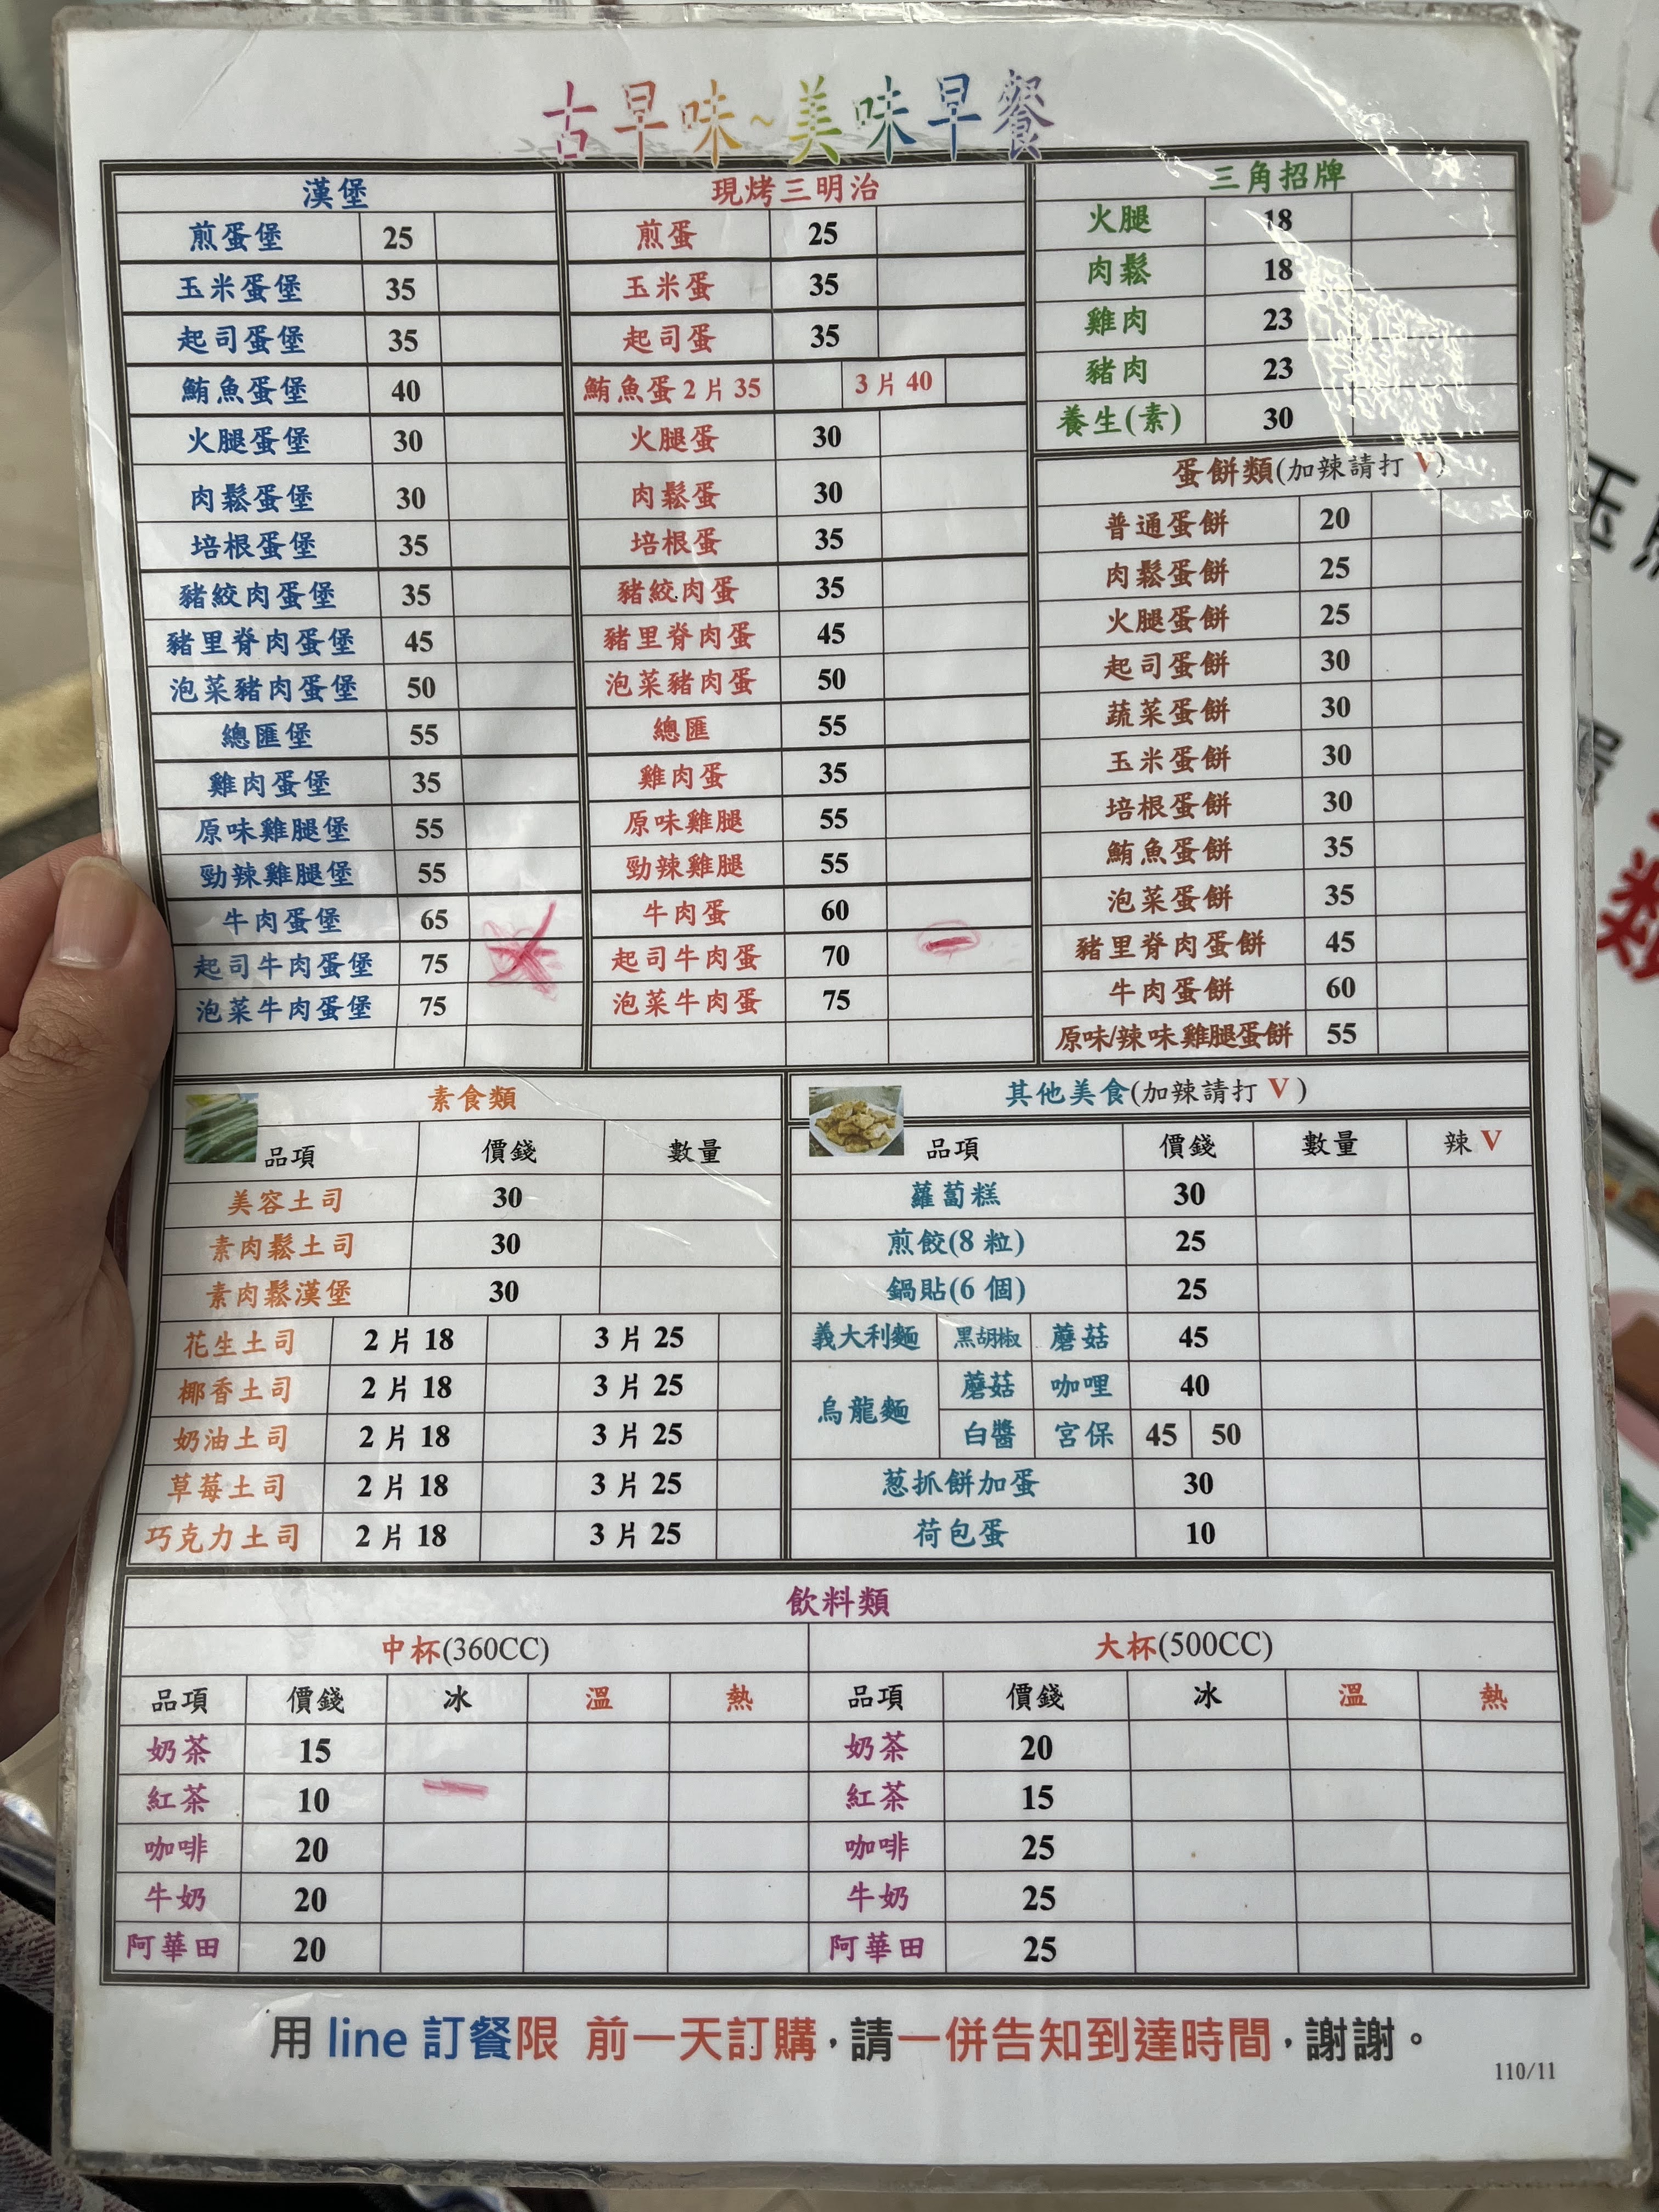 古早味~美味早餐
漢堡
煎蛋堡 25
玉米蛋堡 35
起司蛋堡 35
鮪魚蛋堡 40
火腿蛋堡 30
肉鬆蛋堡 30
培根蛋堡 35
豬絞肉蛋堡 35
豬里脊肉蛋堡 45
泡菜豬肉蛋堡 50
總匯堡 55
雞肉蛋堡 35
原味雞腿堡 55
勁辣雞腿堡 55
牛肉蛋堡 65
起司牛肉蛋堡 75
泡菜牛肉蛋堡 75
現烤三明治
煎蛋 25
玉米蛋 35
起司蛋 35
鮪魚蛋2片35 3片40
火腿蛋 30
肉鬆蛋 30
培根蛋 35
豬絞肉蛋 35
豬里脊肉蛋 45
泡菜豬肉蛋 50
總匯 55
雞肉蛋 35
原味雞腿 55
勁辣雞腿 55
牛肉蛋 60
起司牛肉蛋 70
泡菜牛肉蛋 75
三角招牌
火腿 18
肉鬆 18
雞肉 23
豬肉 23
養生(素) 30
蛋餅類(加辣請打V)
普通蛋餅 20
肉鬆蛋餅 25
火腿蛋餅 25
起司蛋餅 30
蔬菜蛋餅 30
玉米蛋餅 30
培根蛋餅 30
鮪魚蛋餅 35
泡菜蛋餅 35
豬里脊肉蛋餅 45
牛肉蛋餅 60
原味/辣味雞腿蛋餅 55
素食類
品項 價錢 數量
美容土司 30
素肉鬆土司 30
素肉鬆漢堡 30
花生土司 2片18 3片25
椰香土司 2片18 3片25
奶油土司 2片18 3片25
草莓土司 2片18 3片25
巧克力土司 2片18 3片25
其他美食(加辣請打V)
品項 價錢 數量 辣V
蘿蔔糕 30
煎餃(8粒) 25
鍋貼(6個) 25
義大利麵 黑胡椒 蘑菇 45
烏龍麵 蘑菇 咖哩 40
白醬 宮保 45 50
葱抓餅加蛋 30
荷包蛋 10
飲料類
中杯(360CC) 大杯(500CC)
品項 價錢 冰 溫 熱 品項 價錢 冰 溫 熱
奶茶 15 奶茶 20
紅茶 10 紅茶 15
咖啡 20 咖啡 25
牛奶 20 牛奶 25
阿華田 20 阿華田 25
用line訂餐限 前一天訂購，請一併告知到達時間，謝謝。
110/11
類